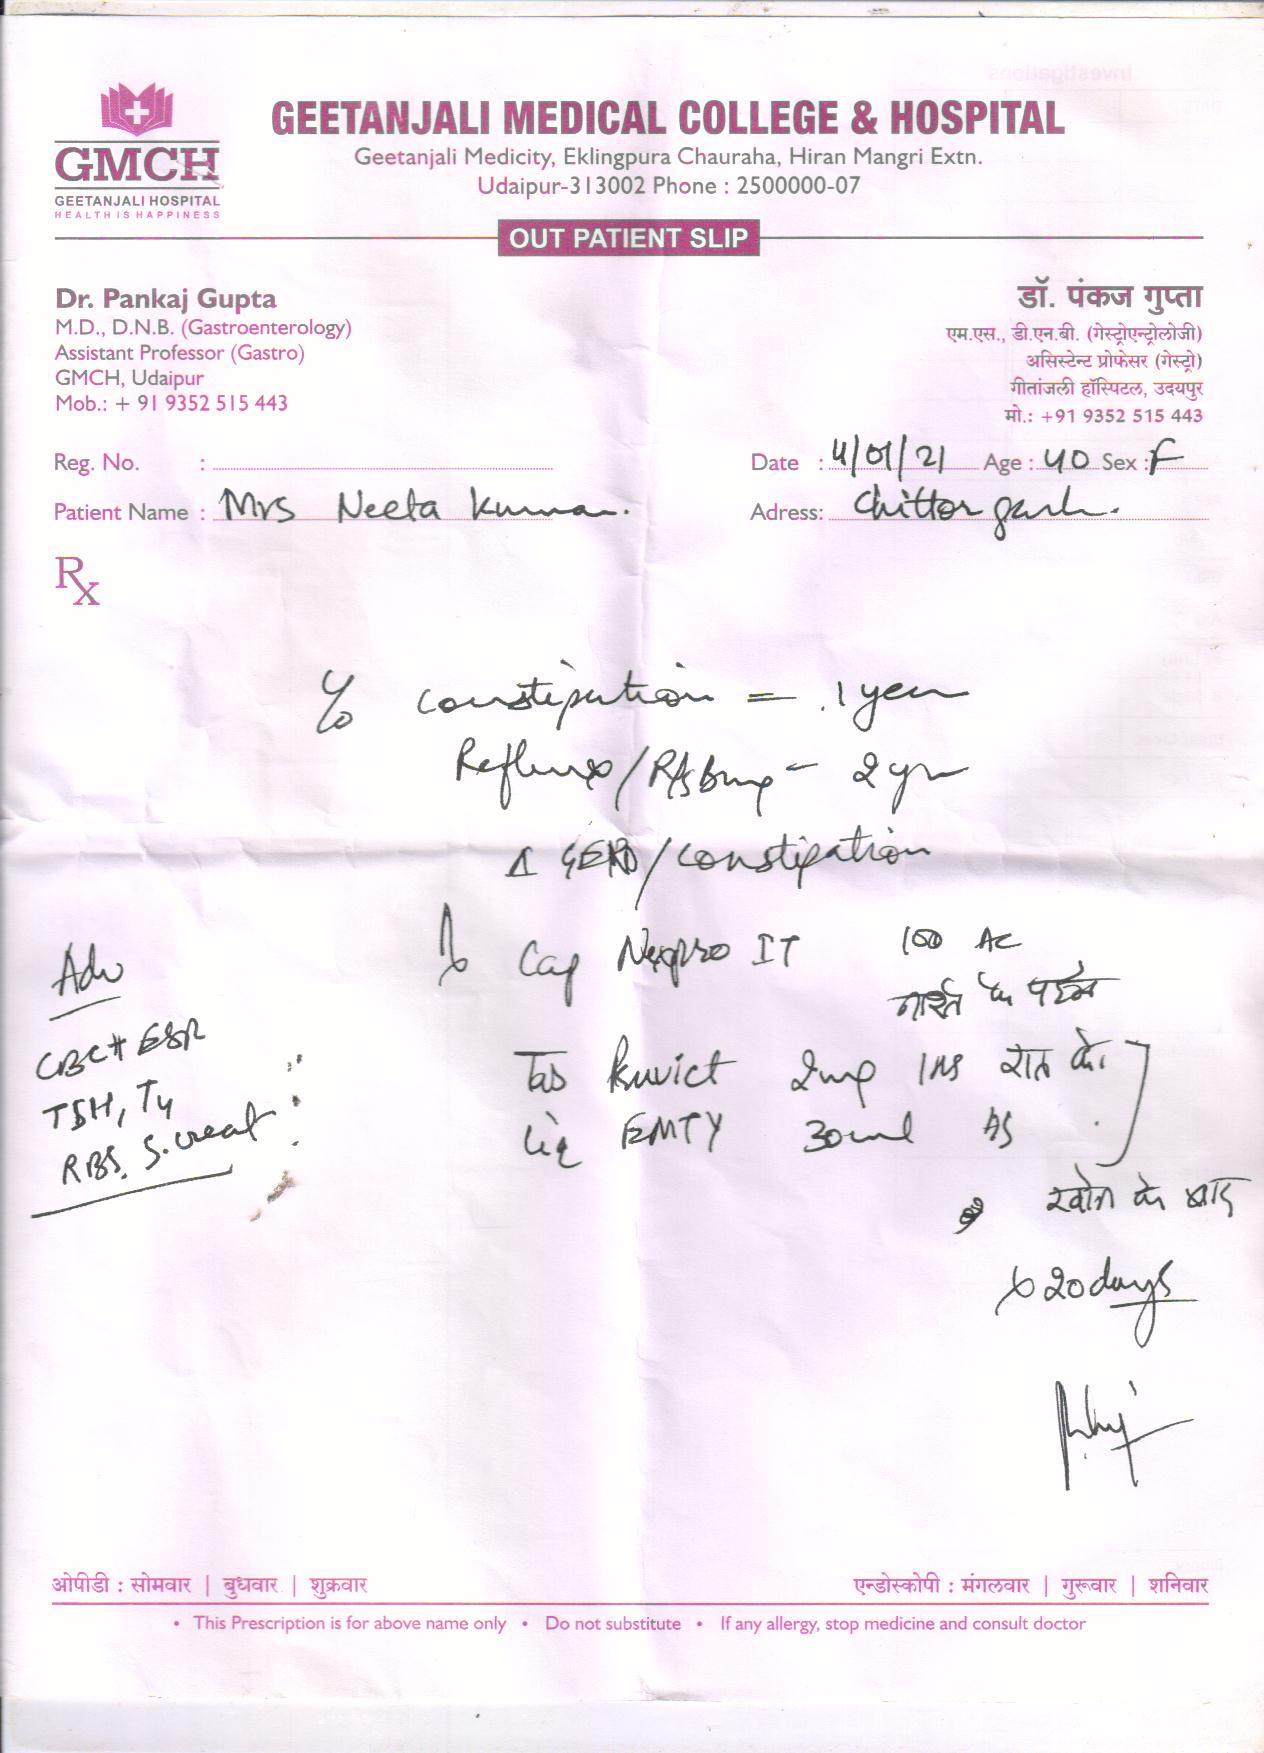 GMCH
GEETANJALI HOSPITAL
HEALTH IS HAPPINESS
GEETANJALI MEDICAL COLLEGE & HOSPITAL
Geetanjali Medicity, Eklingpura Chauraha, Hiran Mangri Extn.
Udaipur-313002 Phone : 2500000-07
OUT PATIENT SLIP
Dr. Pankaj Gupta
M.D., D.N.B. (Gastroenterology)
Assistant Professor (Gastro)
GMCH, Udaipur
Mob.: + 91 9352 515 443
डॉ. पंकज गुप्ता
एम.एस., डी.एन.बी. (गेस्ट्रोएन्ट्रोलोजी)
असिस्टेन्ट प्रोफेसर (गेस्ट्रो)
गीतांजली हॉस्पिटल, उदयपुर
मो.: +91 9352 515 443
Reg. No. :
Date : 4/01/21 Age : 40 Sex : F
Patient Name : Mrs Neeta Kumar.
Adress: Chittorgarh.
Rx
c/o constipation = 1 year
Reflux/ - 2 yr
Δ GERD/constipation
Cap Nexpro IT AC
के
Tab 2mg 1HS रात को
Liq EMTY 30ml HS
खाने के बाद
x 20 days
Adv
CBC + ESR
TSH, T4
RBS, S. creat
ओपीडी : सोमवार | बुधवार | शुक्रवार
एन्डोस्कोपी : मंगलवार | गुरूवार | शनिवार
• This Prescription is for above name only • Do not substitute • If any allergy, stop medicine and consult doctor